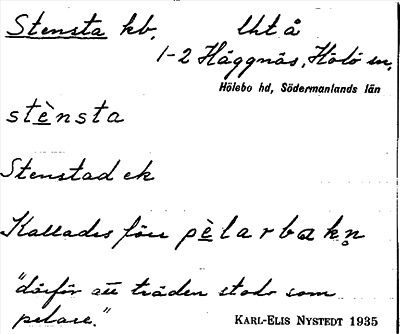 Stensta kb. Uht å
1-2 Häggnäs, Hölö sn,
Hölebo hd, Södermanlands län
stènsta
Stenstad ek
Kallades förr pèlarbakn̥
"därför att träden stodo som
pelare."
KARL-ELIS NYSTEDT 1935